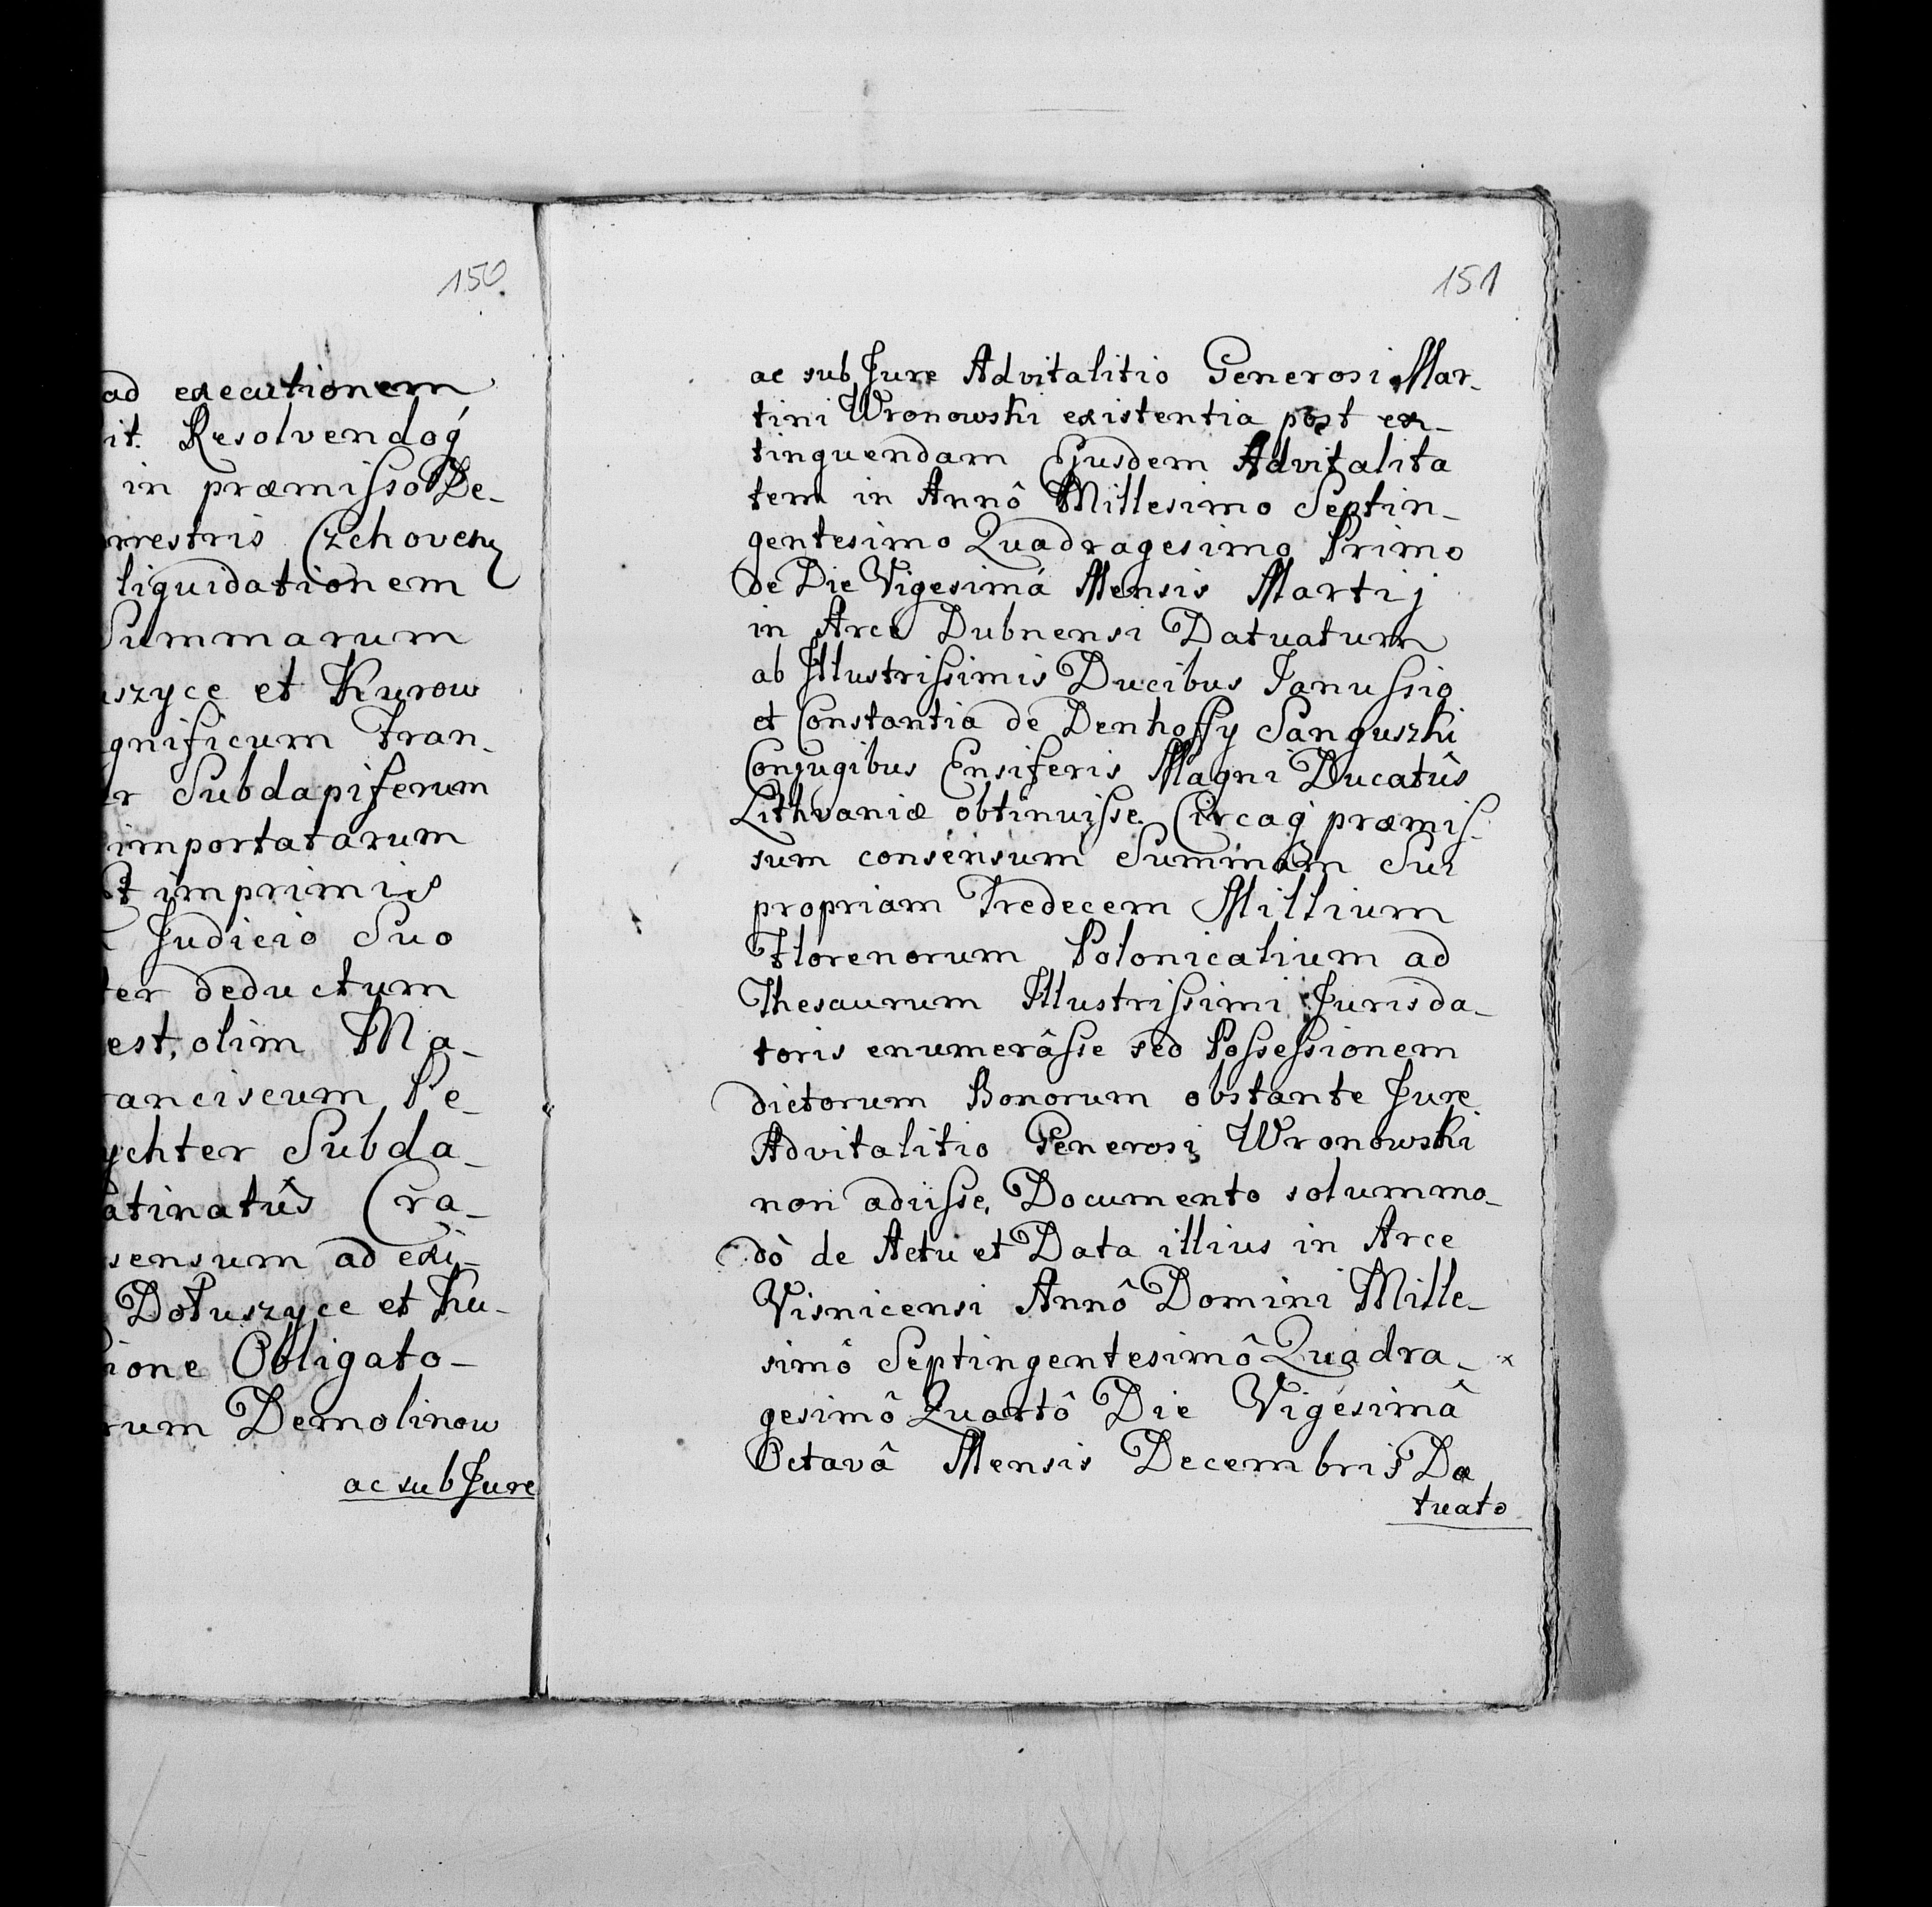 150
ad executionem
it. Resolvendoq́
in præmisso De-
rrestris Czchoven
liquidationem
Summarum
szyce et Kurow
gnificum Fran-
r Subdapiferum
importatarum
t imprimis
Judicio Suo
ter deductum
est, olim Ma-
ranciscum Pe-
ychter Subda-
atinatûs Cra-
sensum ad exi-
Dołuszyce et Ku-
ione Obligato-
rum Demolinow
ac sub Jure
151
ac sub Jure Advitalitio Generosi Mar-
tini Wronowski existentia post ex-
tinguendam Ejusdem Advitalita
tem in Annô Millesimo Septin-
gentesimo Quadragesimo Primo
de Die Vigesimá Mensis Martij
in Arce Dubnensi Datuatum
ab Illustrissimis Ducibus Janussio
et Constantia de Denhoffy Sanguszki
Conjugibus Ensiferis Magni Ducatûs
Lithvaniæ obtinuisse. Circaq́ præmis-
sum consensum Summam Sui
propriam Tredecem Millium
Florenorum Polonicalium ad
Thesaurum Illustrissimi Jurisda-
toris enumerâsse sed Possessionem
dictorum Bonorum obstante Jure
Advitalitio Generosi Wronowski
non adiisse, Documento solummo-
dò de Actu et Data illius in Arce
Visnicensi Annô Domini Mille-
simô Septingentesimô Quadra- x
gesimô Quartô Die Vigesimâ
Octavâ Mensis Decembris Da
tuato